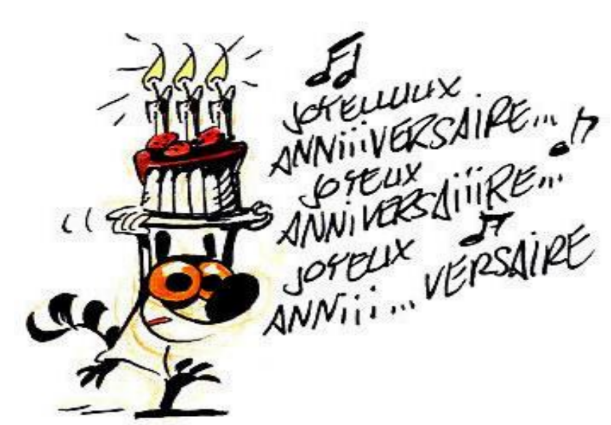 JOYEUUUUX
ANNIIIVERSAIRE...
JOYEUX
ANNIVERSAIIIRE...
JOYEUX
ANNIII...VERSAIRE